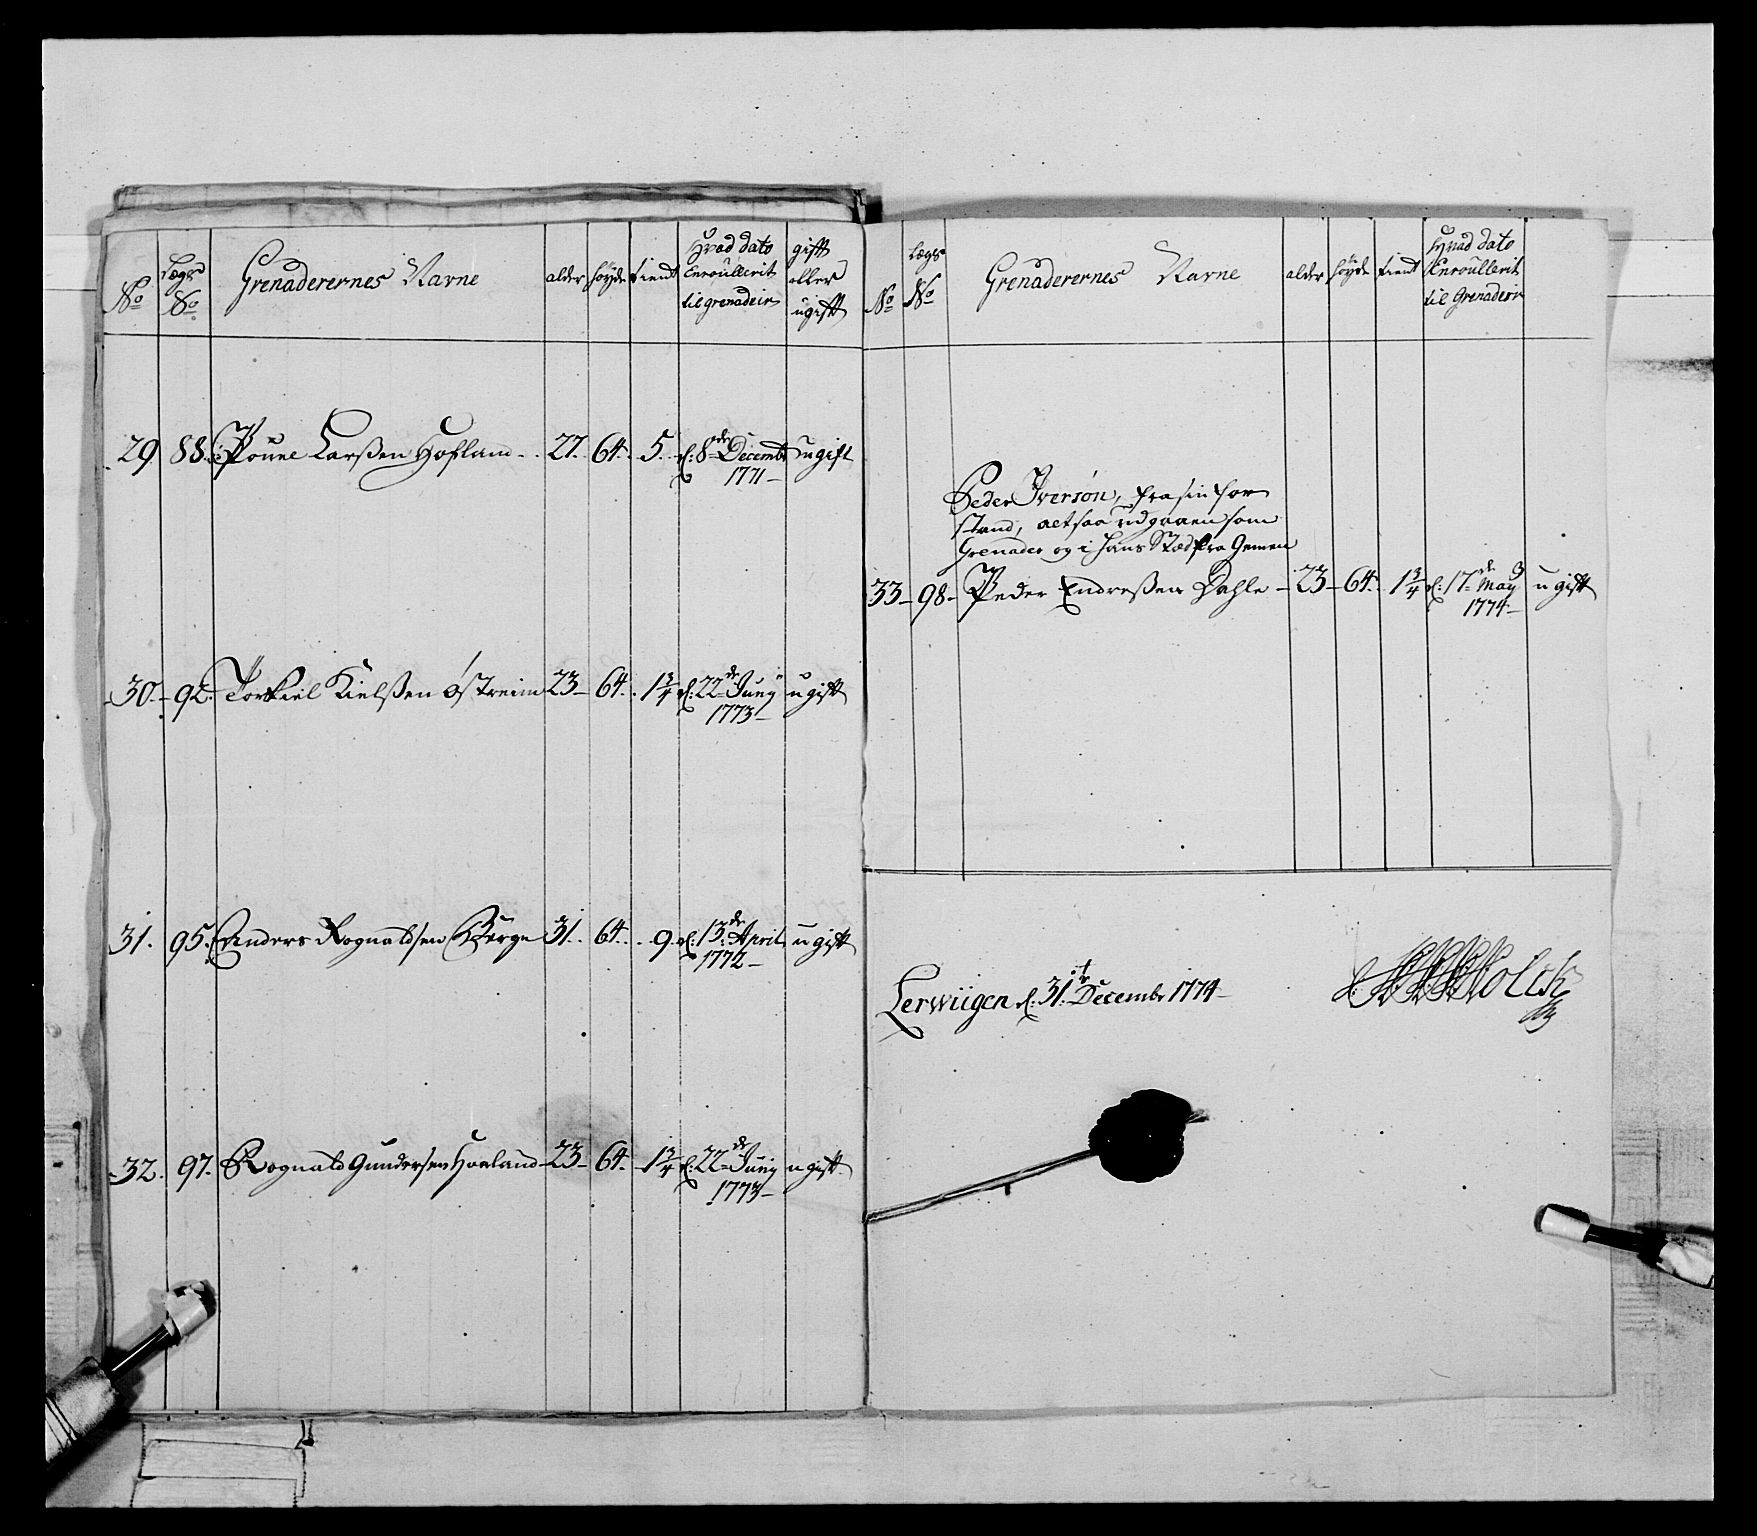 No
Lægs No
Grenaderernes Navne
alder
höyde
tient
Hvad dato Enroullerit til grenadeir
gift eller ugift
29. 88. Pouel Larssen Hofland 27. 64. 5. d: 8de Decembr 1771 ugift
30. 92. Torkiel Kielssen Östreim 23 64. 1 3/4 d: 22de Juny 1773 ugift
31. 95. Anders Rognaldsen Berge 31. 64. 9. d: 13de April 1772 ugift
32. 97. Rognald Gundersen Haaland 23 64. 1 3/4 d: 22de Juny 1773 ugift
No
Lægs No
Grenaderernes Navne
alder
höyde
tient
Hvad dato Enroullerit til Grenadeir
Peder Iversøn, fra sin for
stand, altsaa udgaaen som
Grenader og i hans Stæd fra Gemen
33 98 Peder Endressen Dahle 23 64. 1 3/4 d: 17de May 1774 ugift
Lerwiigen d: 31te Decembr 1774